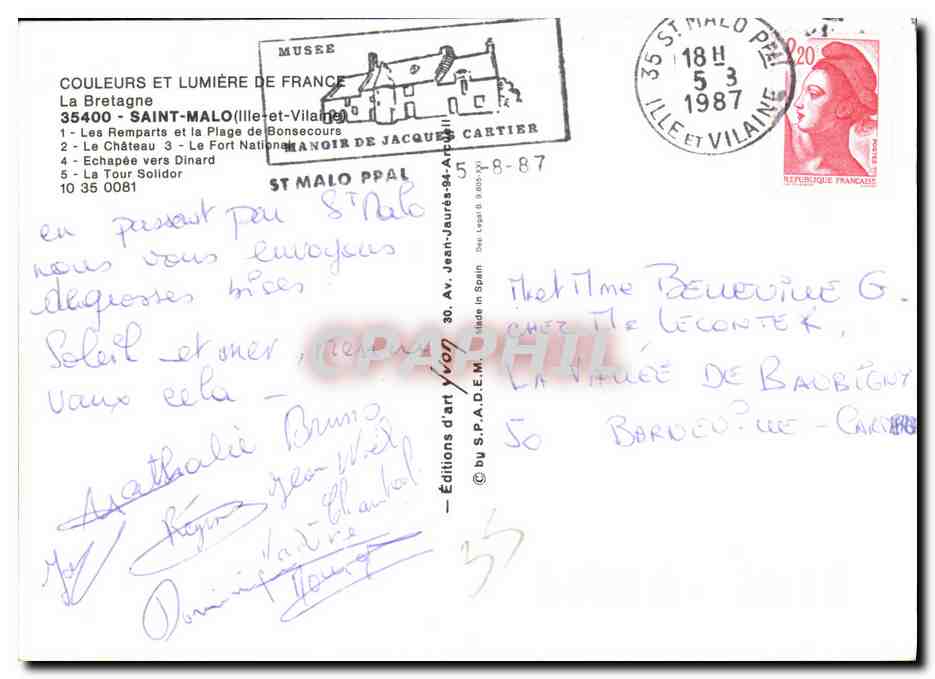 MUSEE
MANOIR DE JACQUES CARTIER
ST MALO PPAL
5-8-87
35 ST MALO PPAL
18H
5 3
1987
ILLE ET VILAINE
2,20
POSTES
REPUBLIQUE FRANCAISE
COULEURS ET LUMIÈRE DE FRANCE
La Bretagne
35400 - SAINT-MALO (Ille-et-Vilaine)
1 - Les Remparts et la Plage de Bonsecours
2 - Le Château 3 - Le Fort National
4 - Echapée vers Dinard
5 - La Tour Solidor
10 35 0081
en passant par St Malo
nous vous envoyons
de grosses bises.
Soleil et mer,
vaux cela -
Nathalie Bruno
Régine Jean Noël
Chantal
Dominique
— Éditions d'art Yvon 30, Av. Jean-Jaurès-94-Arcueil
© by S.P.A.D.E.M. Made in Spain Dep. Legal B. 9.605-XXI
Mr et Mme BELLEVILLE G.
CHEZ Mr LECONTE R,
LA VALLÉE DE BAUBIGNY
50 BARNEVILLE - CARTERET
35
CPAPHIL